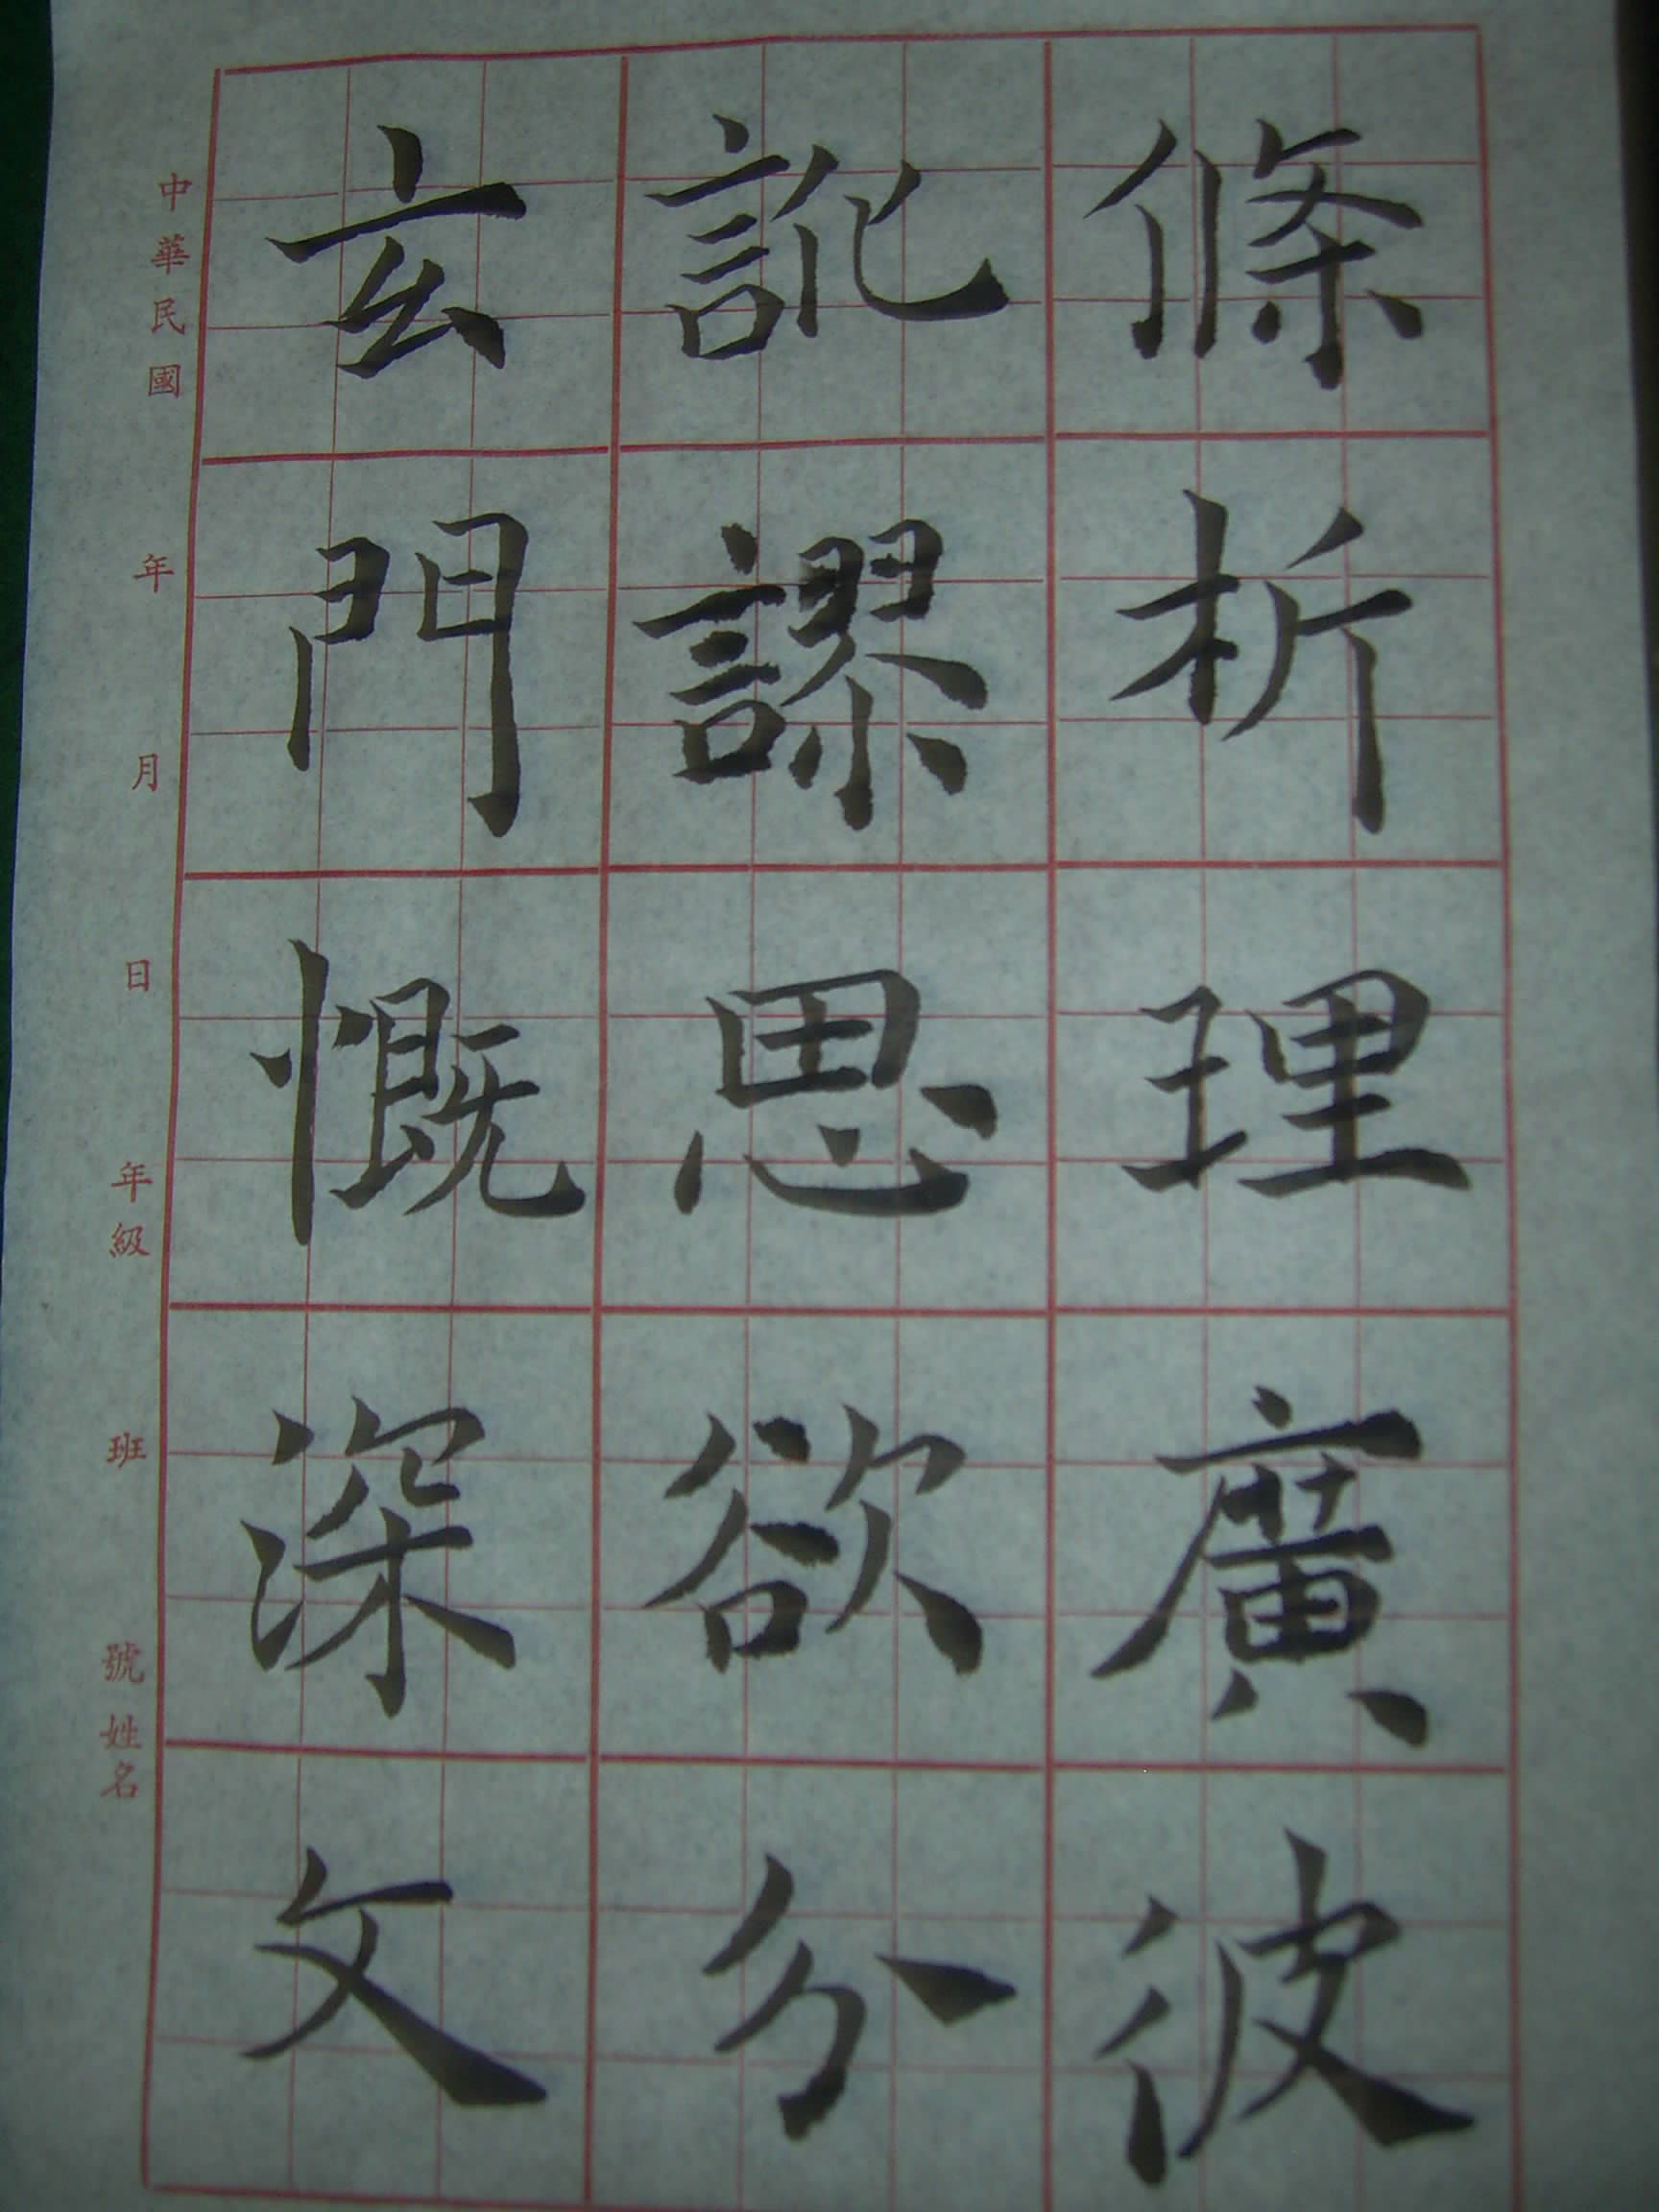 條析理廣彼
訛謬思欲分
玄門慨深文
中華民國 年 月 日 年級 班 號 姓名